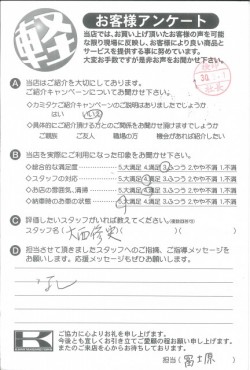 軽
お客様アンケート
当店では、お買い上げ頂いたお客様の声を可能
な限り現場に反映し、お客様により良い商品と
サービスを提供する事に努めています。
大変お手数ですが是非お声をお聞かせ下さい。
A 当店はご紹介を大切にしております。
ご紹介キャンペーンについてお聞かせ下さい。
◇カミタケご紹介キャンペーンのご説明はありましたでしょうか
はい いいえ
◇具体的にご紹介頂ける方とのご関係をお聞かせ頂けますでしょうか
ご親戚 ご友人 職場の方 機会があれば紹介したい
B 当店を実際にご利用になった印象をお聞かせ下さい。
◇総合的な満足度 5.大満足 4.満足 3.ふつう 2.やや不満 1.不満
◇スタッフの対応 5.大満足 4.満足 3.ふつう 2.やや不満 1.不満
◇お店の雰囲気、清掃 5.大満足 4.満足 3.ふつう 2.やや不満 1.不満
◇納車時のお車の状態 5.大満足 4.満足 3.ふつう 2.やや不満 1.不満
C 評価したいスタッフがいれば教えてください。(複数回答可)
スタッフ名( 大西 )( )
D 担当させて頂きましたスタッフへのご指摘、ご指導メッセージを
お願いします。応援メッセージもぜひお願いします。
なし
K
ご協力に心よりお礼を申し上げます。
今後とも宜しくお引き立てご愛顧の程お願い申し上げます。
またのご来店を心からお待ちしております。
担当( 冨士原 )